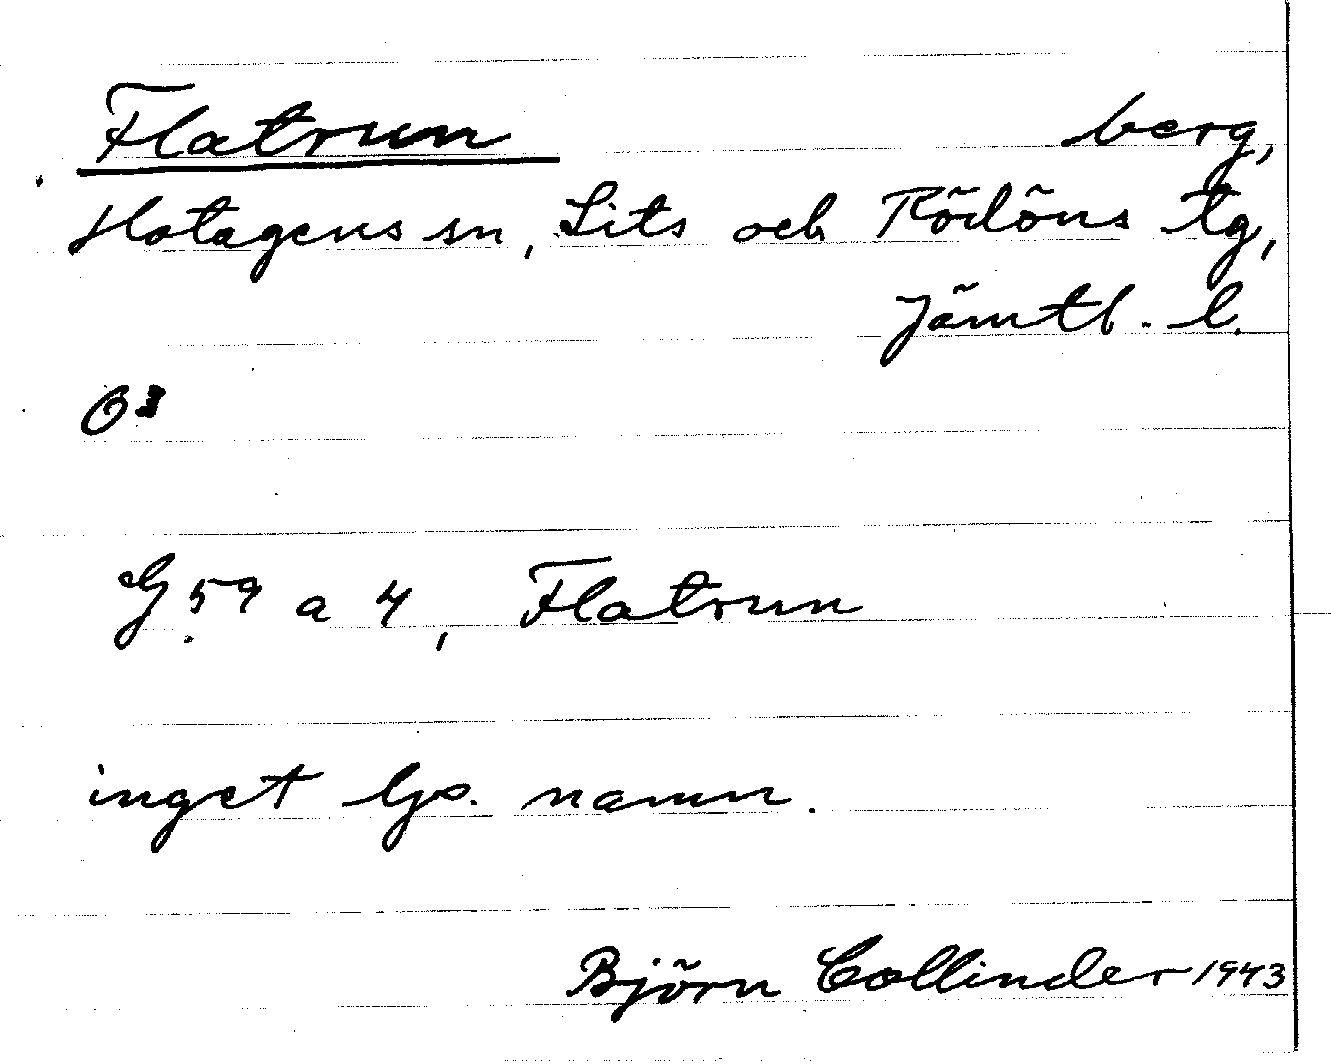 Flatrun berg,
Hotagens sn, Lits och Rödöns tg,
Jämtl. l.
G 59 a 4, Flatrun
inget lp. namn.
Björn Collinder 1943